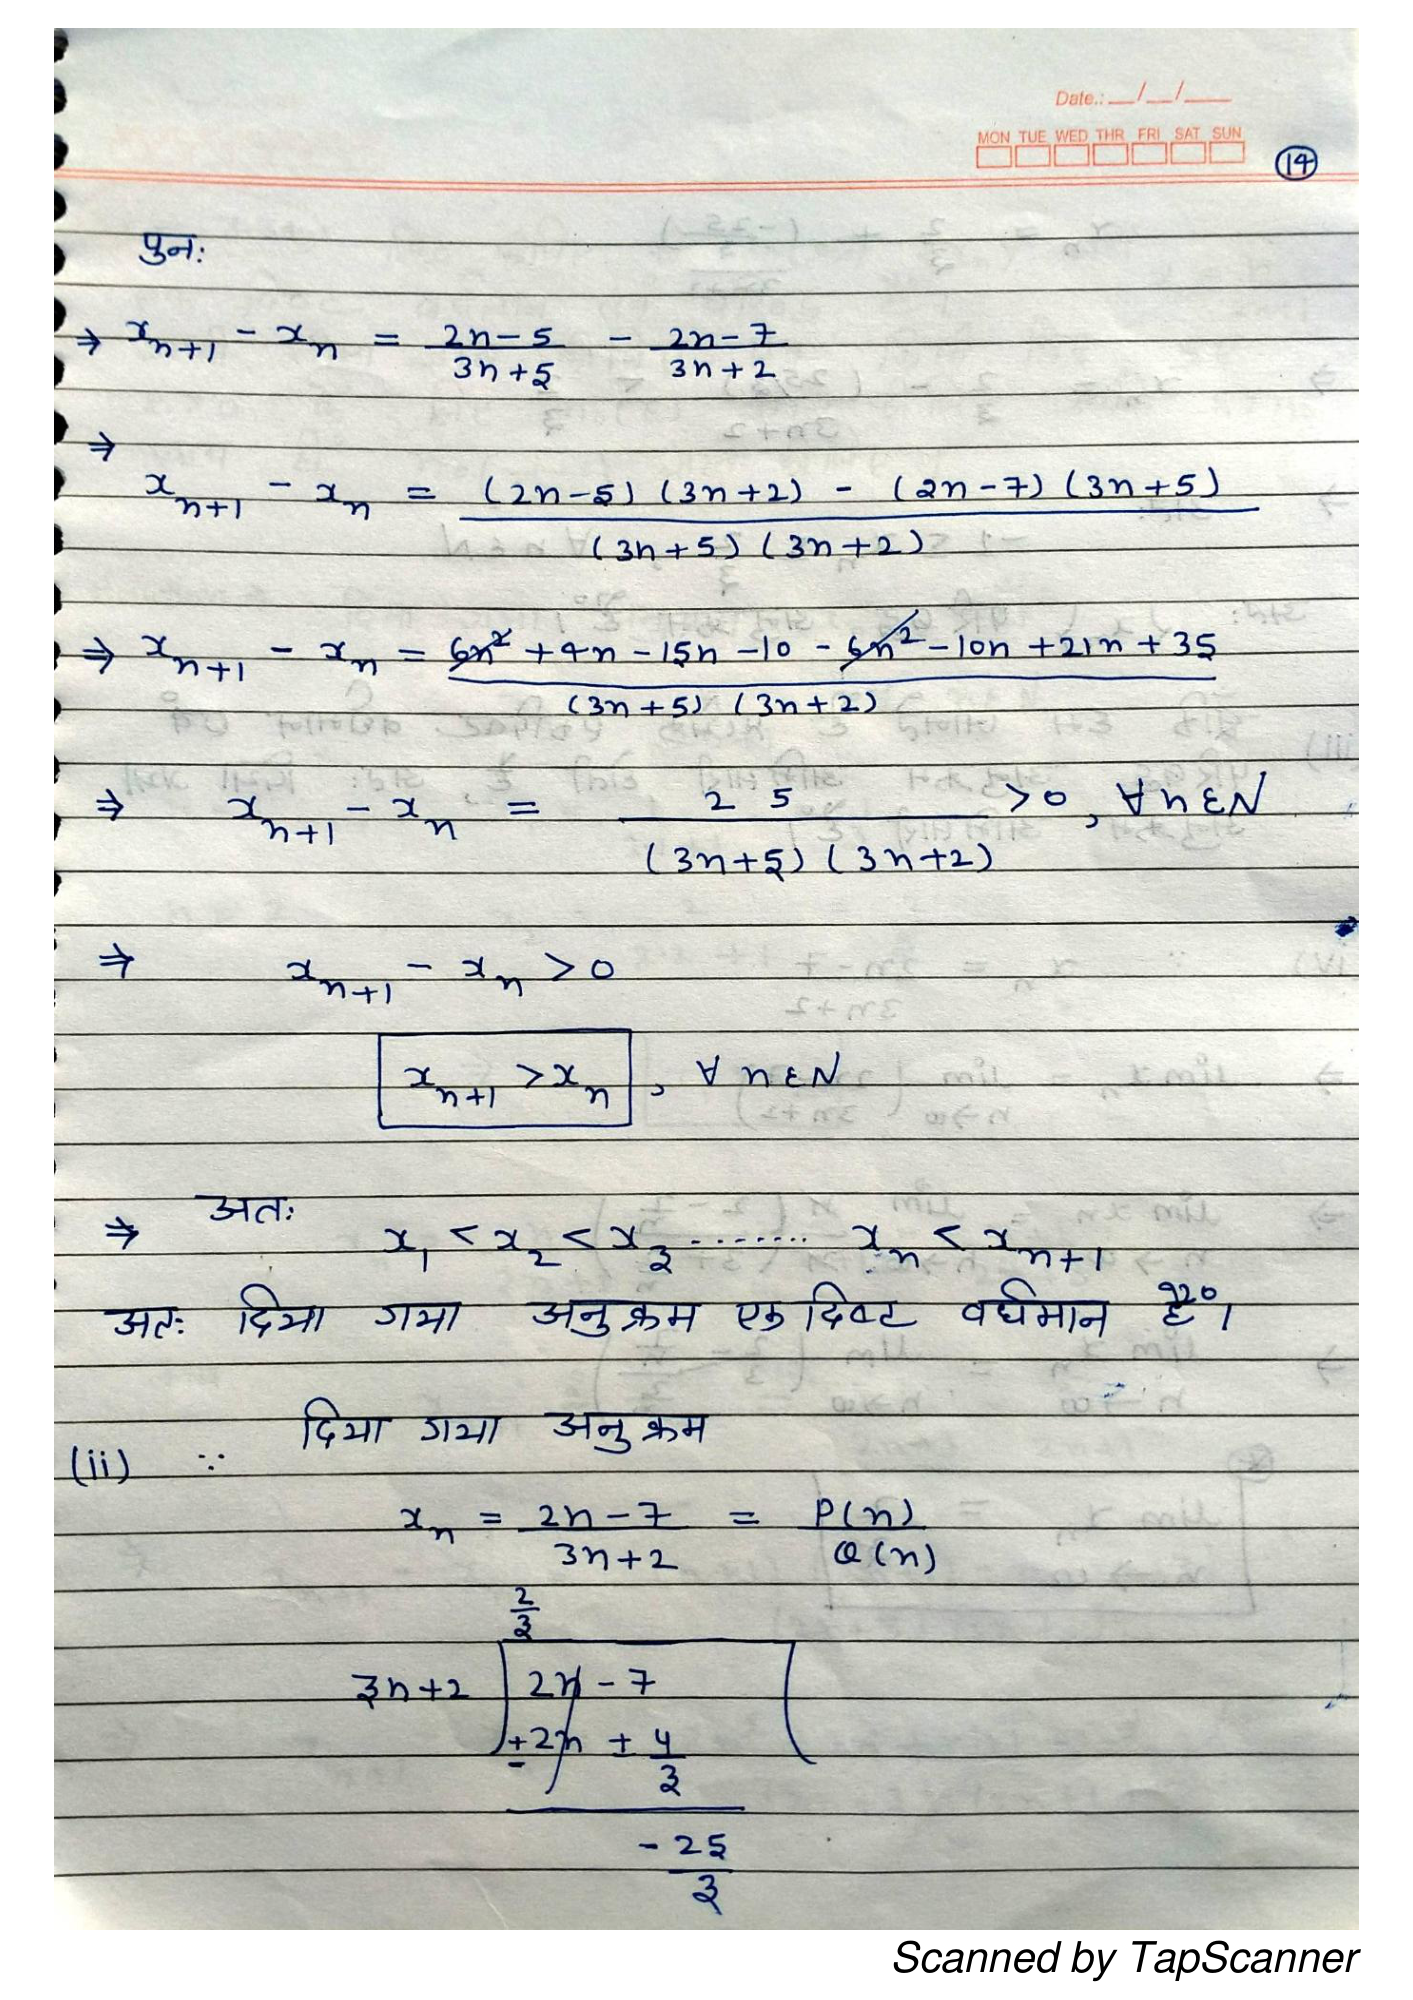 Date.: __/__/___
MON TUE WED THR FRI SAT SUN
14
पुनः
⇒ x_{n+1} - x_n = (2n-5)/(3n+5) - (2n-7)/(3n+2)
⇒
x_{n+1} - x_n = ((2n-5)(3n+2) - (2n-7)(3n+5))/((3n+5)(3n+2))
⇒ x_{n+1} - x_n = (6n² + 4n - 15n - 10 - 6n² - 10n + 21n + 35)/((3n+5)(3n+2))
⇒ x_{n+1} - x_n = 25/((3n+5)(3n+2)) > 0, ∀ n ∈ N
⇒ x_{n+1} - x_n > 0
x_{n+1} > x_n, ∀ n ∈ N
अतः
⇒ x_1 < x_2 < x_3 ........ x_n < x_{n+1}
अतः दिया गया अनुक्रम एकदिष्ट वर्धमान है।
दिया गया अनुक्रम
(ii) ∵
x_n = (2n-7)/(3n+2) = P(n)/Q(n)
2/3
3n+2 2n - 7
±2n ± 4/3
-25/3
Scanned by TapScanner